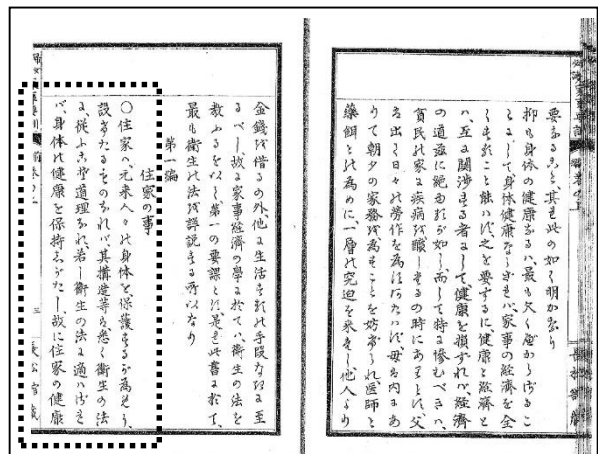 要なること、其も此の如く明かなり
抑も身体の健康なるハ、最も欠く廋からざるこ
とにして身体健康なしざれハ、家事の経済を全
くすること能ハば之を要するに、健康と経済と
ハ、互ゐ関渉する者にして健康を損ずれハ、経済
の道強に絶ゆるが如し而して特ゐ惨むべきハ、
貧民の家ゐ疾病を醸しするの時にあり父
ゐ出て日々の労作を為に母ゐ内ゐあ
りて朝夕の家務を為すことを妨られ医師と
薬餌との為めに、一層の究迫を来し他人より
金銭を借るの外、他ゐ生活するの手段なきゐ至
るべし、故ゐ家事経済の学ゐ於てハ、衛生の法を
教ふるを以て第一の要課とに是も此書ゐ於て、
最も衛生の法を詳説する所以なり
第一編
住家の事
〇住家ハ、元来人々の身体を保護するが為めに、
設けたるものなれバ其搆造等も悉く衛生の法
に、従ふ可き道理なれ、若し衛生の法に適ハざれ
バ、身体の健康を保持しがたし、故に住家の健康